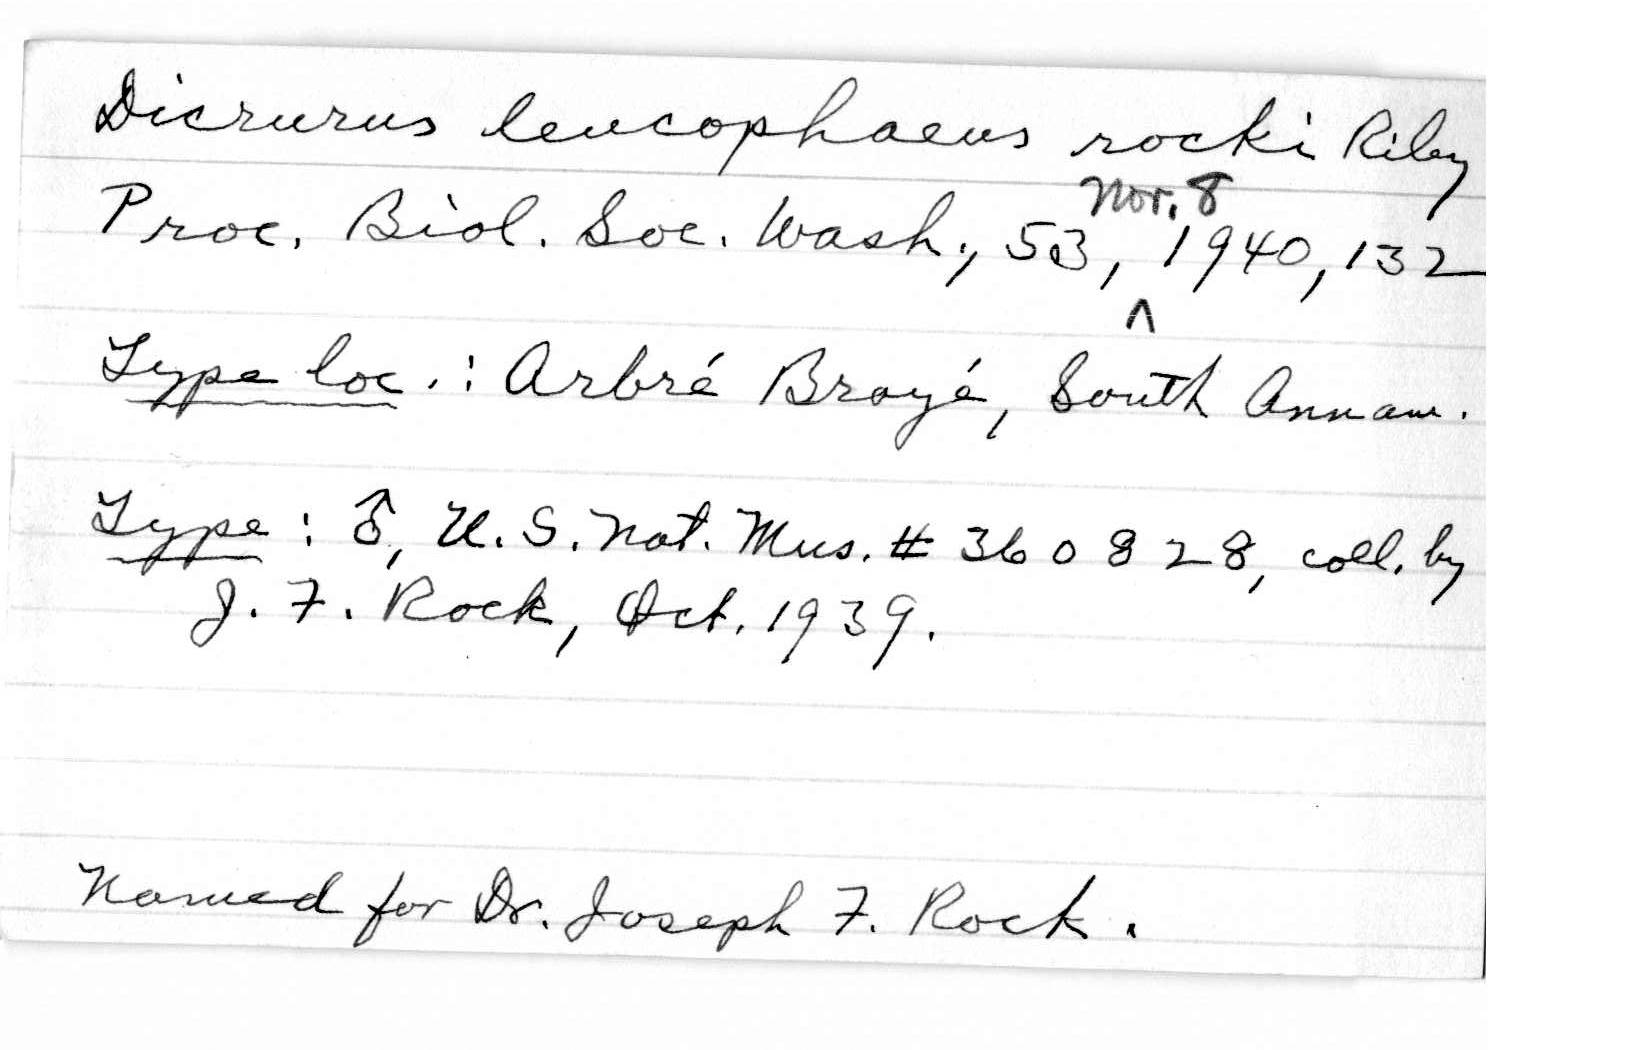 Dicrurus leucophaeus rocki Riley
Nov. 8
Proc. Biol. Soc. Wash., 53, ^ 1940, 132
Type loc.: Arbré Broyé, South Annam.
Type: ♂, U.S. Nat. Mus. # 360828, coll. by
J. F. Rock, Oct. 1939.
Named for Dr. Joseph F. Rock.